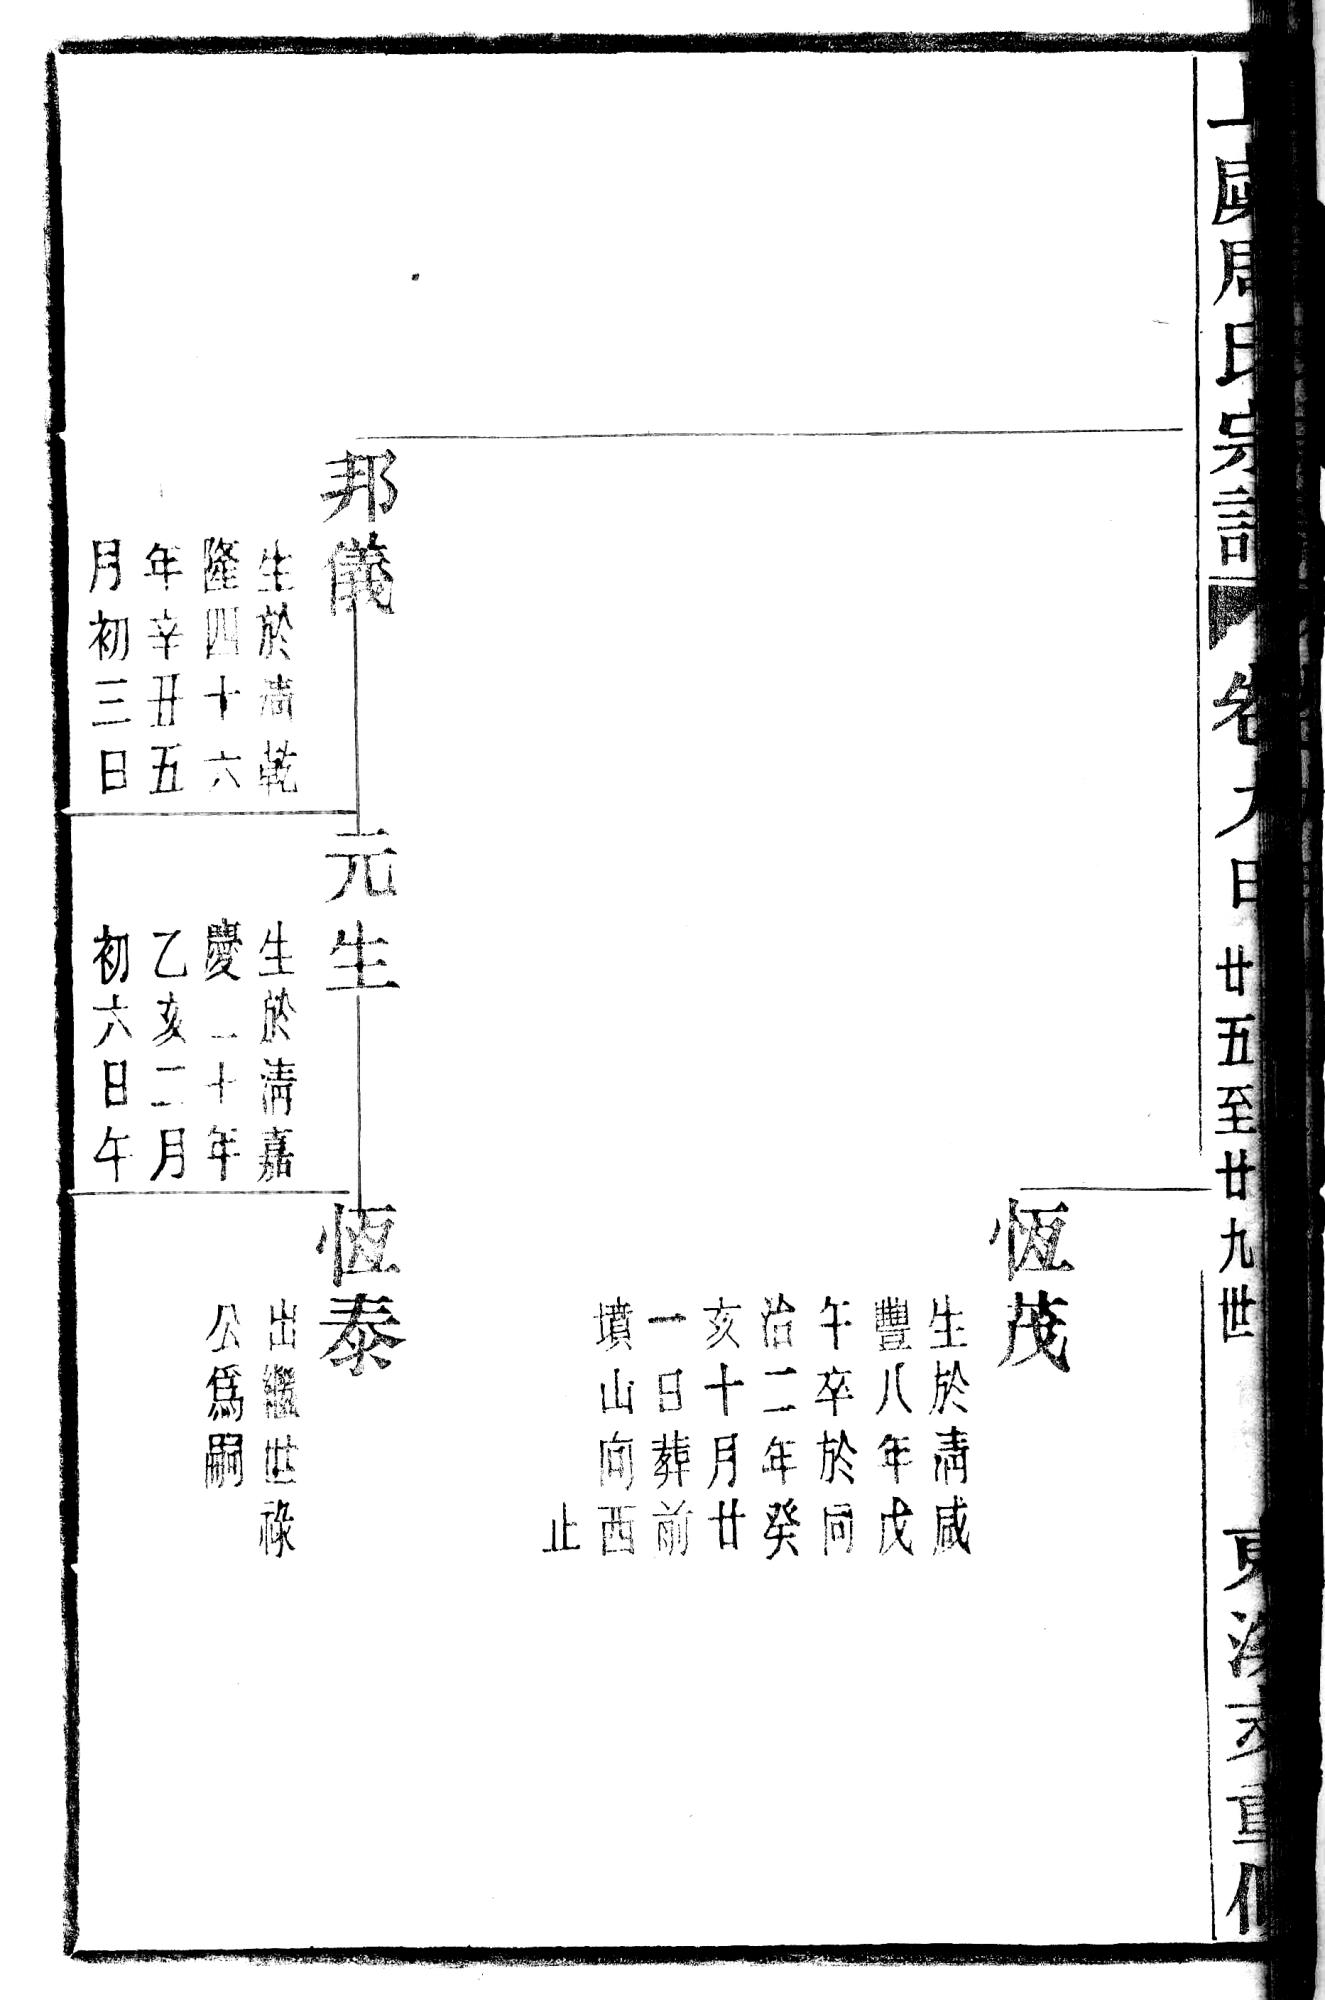 周氏宗譜 卷九
廿五至廿九世
重修
恆茂
生於淸咸
豐八年戊
午卒於同
治二年癸
亥十月廿
一日葬前
墳山向西
止
邦儀
生於淸乾
隆四十六
年辛丑五
月初三日
元生
生於淸嘉
慶二十年
乙亥二月
初六日午
恆泰
出繼世祿
公爲嗣